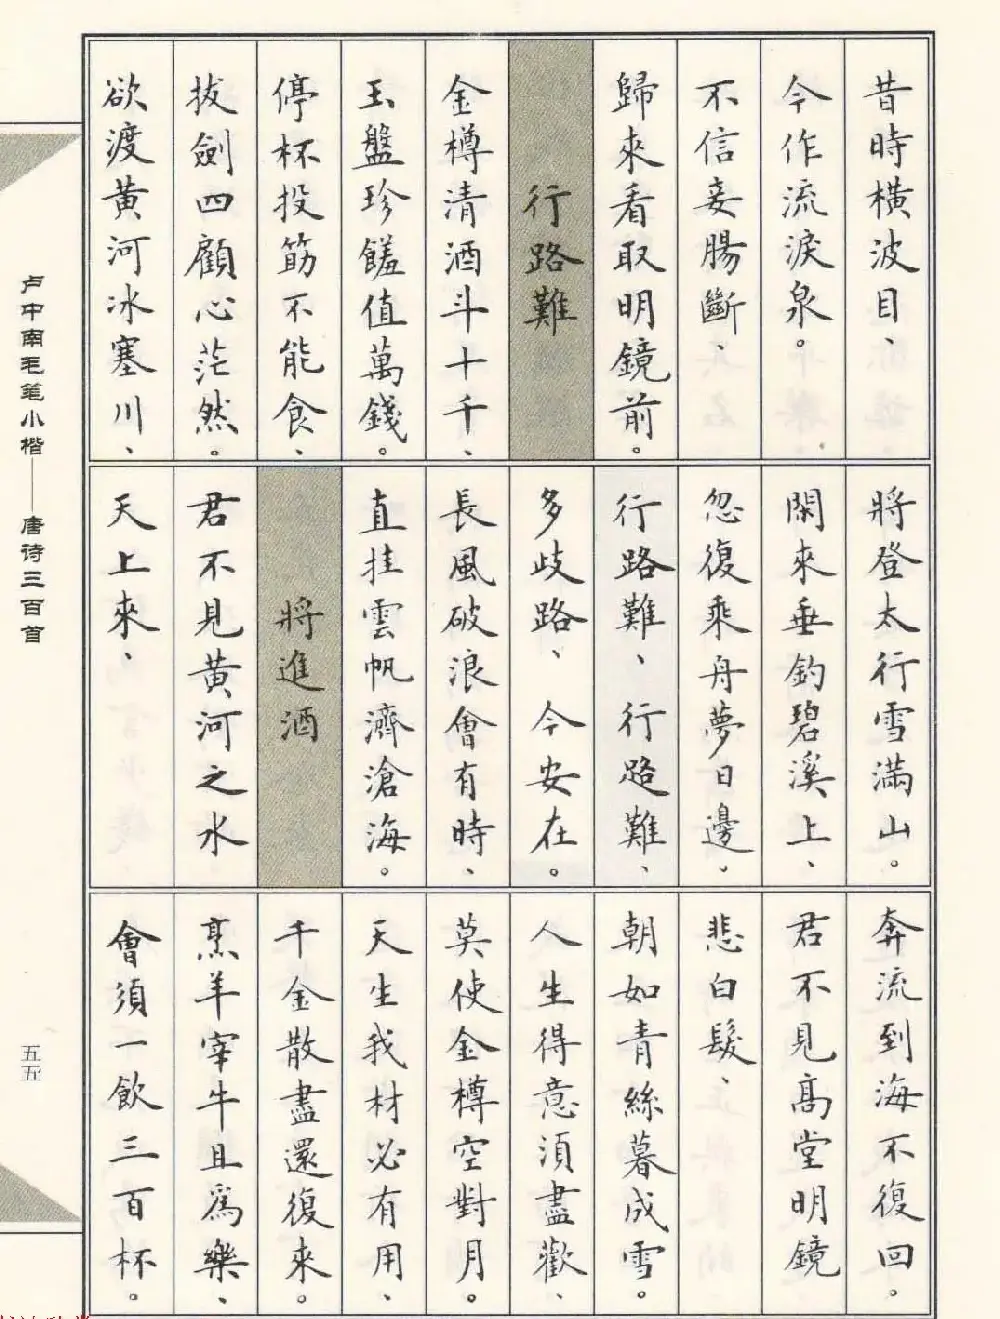 昔時橫波目、
今作流淚泉。
不信妾腸斷、
歸來看取明鏡前。
行路難
金樽清酒斗十千、
玉盤珍饈值萬錢。
停杯投筯不能食、
拔劍四顧心茫然。
欲渡黃河冰塞川、
將登太行雪滿山。
閑來垂釣碧溪上、
忽復乘舟夢日邊、
行路難、行路難、
多歧路、今安在。
長風破浪會有時、
直挂雲帆濟滄海。
將進酒
君不見黃河之水
天上來、
奔流到海不復回。
君不見高堂明鏡
悲白髮、
朝如青絲暮成雪。
人生得意須盡歡、
莫使金樽空對月。
天生我材必有用、
千金散盡還復來。
烹羊宰牛且爲樂、
會須一飲三百杯。
卢中南毛笔小楷——唐诗三百首
五五